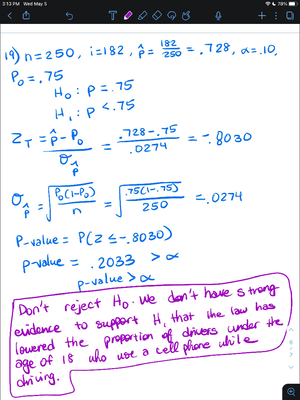 3:13 PM Wed May 5
78%
19) n=250, i=182, p̂ = 182/250 = .728, α=.10,
P₀=.75
H₀: P=.75
H₁: P<.75
Z_T = (p̂-P₀)/σ_p̂ = (.728-.75)/.0274 = -.8030
σ_p̂ = √(P₀(1-P₀)/n) = √(.75(1-.75)/250) = .0274
P-value = P(Z ≤ -.8030)
P-value = .2033 > α
P-value > α
Don't reject H₀. We don't have strong
evidence to support H, that the law has
lowered the proportion of drivers under the
age of 18 who use a cell phone while
driving.